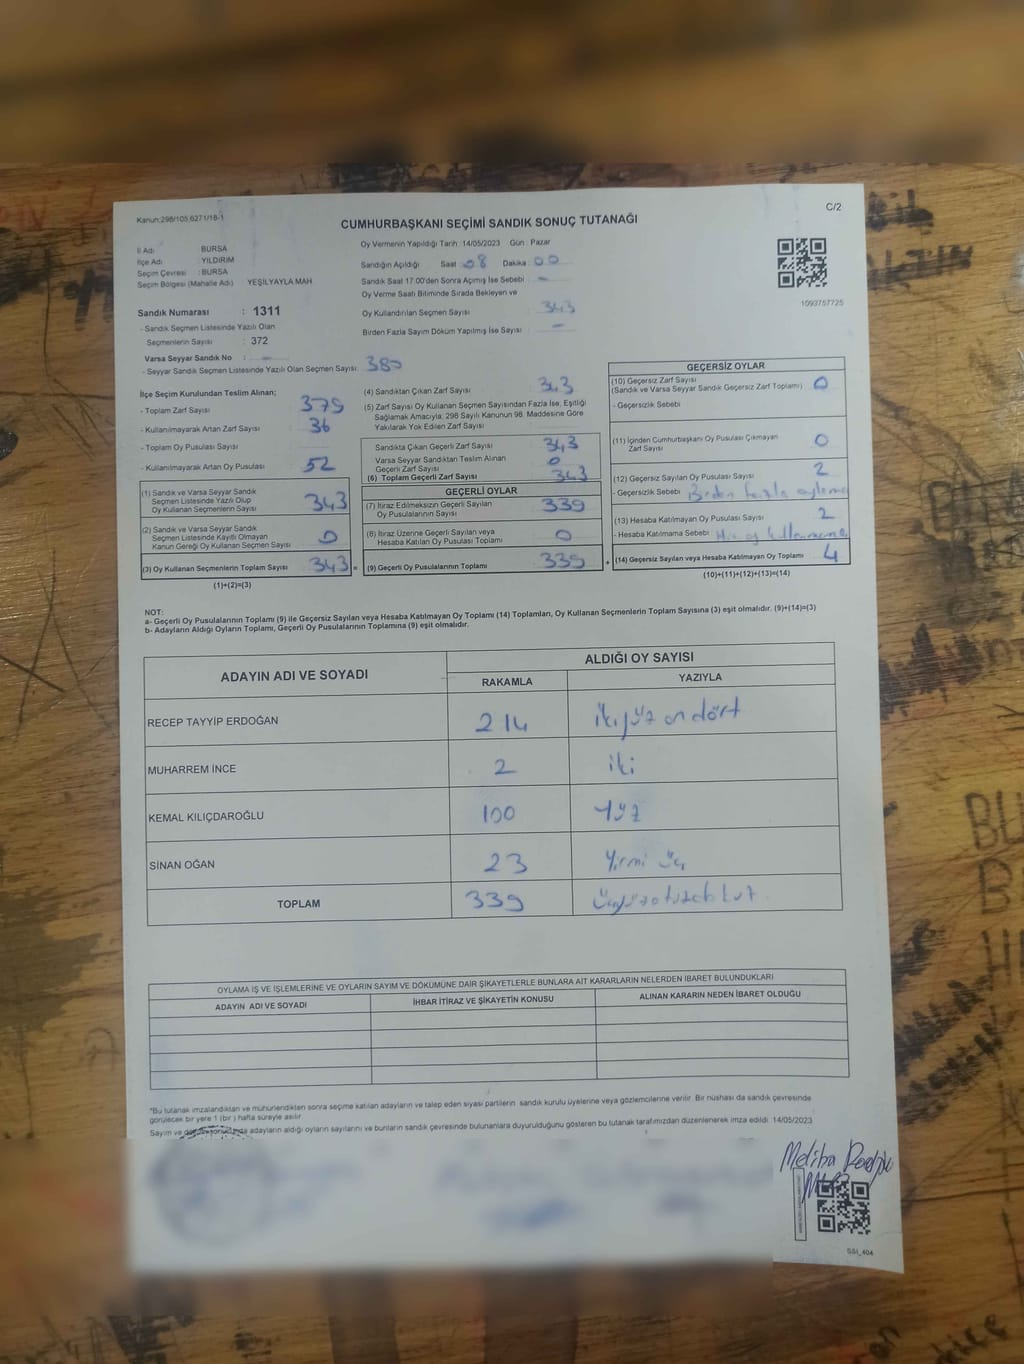 Kanun:298/105,6271/18-1
C/2
CUMHURBAŞKANI SEÇİMİ SANDIK SONUÇ TUTANAĞI
İl Adı : BURSA
İlçe Adı : YILDIRIM
Seçim Çevresi : BURSA
Seçim Bölgesi (Mahalle Adı) YEŞİLYAYLA MAH
Sandık Numarası : 1311
- Sandık Seçmen Listesinde Yazılı Olan
Seçmenlerin Sayısı : 372
Varsa Seyyar Sandık No : -
- Seyyar Sandık Seçmen Listesinde Yazılı Olan Seçmen Sayısı: 380
Oy Vermenin Yapıldığı Tarih: 14/05/2023 Gün : Pazar
Sandığın Açıldığı Saat :08 Dakika: 00
Sandık Saat 17:00'den Sonra Açımış İse Sebebi : -
Oy Verme Saati Bitiminde Sırada Bekleyen ve
Oy Kullandırılan Seçmen Sayısı : 343
Birden Fazla Sayım Döküm Yapılmış İse Sayısı : -
1093757725
İlçe Seçim Kurulundan Teslim Alınan;
- Toplam Zarf Sayısı : 379
- Kullanılmayarak Artan Zarf Sayısı : 36
- Toplam Oy Pusulası Sayısı :
- Kullanılmayarak Artan Oy Pusulası : 52
(1) Sandık ve Varsa Seyyar Sandık
Seçmen Listesinde Yazılı Olup
Oy Kullanan Seçmenlerin Sayısı : 343
(2) Sandık ve Varsa Seyyar Sandık
Seçmen Listesinde Kayıtlı Olmayan
Kanun Gereği Oy Kullanan Seçmen Sayısı : 0
(3) Oy Kullanan Seçmenlerin Toplam Sayısı : 343 =
(1)+(2)=(3)
(4) Sandıktan Çıkan Zarf Sayısı : 343
(5) Zarf Sayısı Oy Kullanan Seçmen Sayısından Fazla İse, Eşitliği
Sağlamak Amacıyla; 298 Sayılı Kanunun 98. Maddesine Göre
Yakılarak Yok Edilen Zarf Sayısı :
Sandıkta Çıkan Geçerli Zarf Sayısı : 343
Varsa Seyyar Sandıktan Teslim Alınan
Geçerli Zarf Sayısı : 0
(6) Toplam Geçerli Zarf Sayısı : 343
GEÇERLİ OYLAR
(7) İtiraz Edilmeksizin Geçerli Sayılan
Oy Pusulalarının Sayısı : 339
(8) İtiraz Üzerine Geçerli Sayılan veya
Hesaba Katılan Oy Pusulası Toplamı : 0
(9) Geçerli Oy Pusulalarının Toplamı : 339 +
GEÇERSİZ OYLAR
(10) Geçersiz Zarf Sayısı
(Sandık ve Varsa Seyyar Sandık Geçersiz Zarf Toplamı) : 0
- Geçersizlik Sebebi :
(11) İçinden Cumhurbaşkanı Oy Pusulası Çıkmayan
Zarf Sayısı : 0
(12) Geçersiz Sayılan Oy Pusulası Sayısı : 2
- Geçersizlik Sebebi : Birden fazla oylama
(13) Hesaba Katılmayan Oy Pusulası Sayısı : 2
- Hesaba Katılmama Sebebi : Hiç oy kullanmama
(14) Geçersiz Sayılan veya Hesaba Katılmayan Oy Toplamı : 4
(10)+(11)+(12)+(13)=(14)
NOT:
a- Geçerli Oy Pusulalarının Toplamı (9) ile Geçersiz Sayılan veya Hesaba Katılmayan Oy Toplamı (14) Toplamları, Oy Kullanan Seçmenlerin Toplam Sayısına (3) eşit olmalıdır. (9)+(14)=(3)
b- Adayların Aldığı Oyların Toplamı, Geçerli Oy Pusulalarının Toplamına (9) eşit olmalıdır.
ADAYIN ADI VE SOYADI ALDIĞI OY SAYISI
RAKAMLA YAZIYLA
RECEP TAYYİP ERDOĞAN 214 ikiyüz on dört
MUHARREM İNCE 2 iki
KEMAL KILIÇDAROĞLU 100 Yüz
SİNAN OĞAN 23 Yirmi üç
TOPLAM 339 üçyüzotuzdokuz
OYLAMA İŞ VE İŞLEMLERİNE VE OYLARIN SAYIM VE DÖKÜMÜNE DAİR ŞİKAYETLERLE BUNLARA AİT KARARLARIN NELERDEN İBARET BULUNDUKLARI
ADAYIN ADI VE SOYADI İHBAR İTİRAZ VE ŞİKAYETİN KONUSU ALINAN KARARIN NEDEN İBARET OLDUĞU
*Bu tutanak imzalandıktan ve mühürlendikten sonra seçime katılan adayların ve talep eden siyasi partilerin sandık kurulu üyelerine veya gözlemcilerine verilir. Bir nüshası da sandık çevresinde
görülecek bir yere 1 (bir ) hafta süreyle asılır.
Sayım ve döküm sonucunda adayların aldığı oyların sayılarını ve bunların sandık çevresinde bulunanlara duyurulduğunu gösteren bu tutanak tarafımızdan düzenlenerek imza edildi. 14/05/2023
Meliha
SSI_404